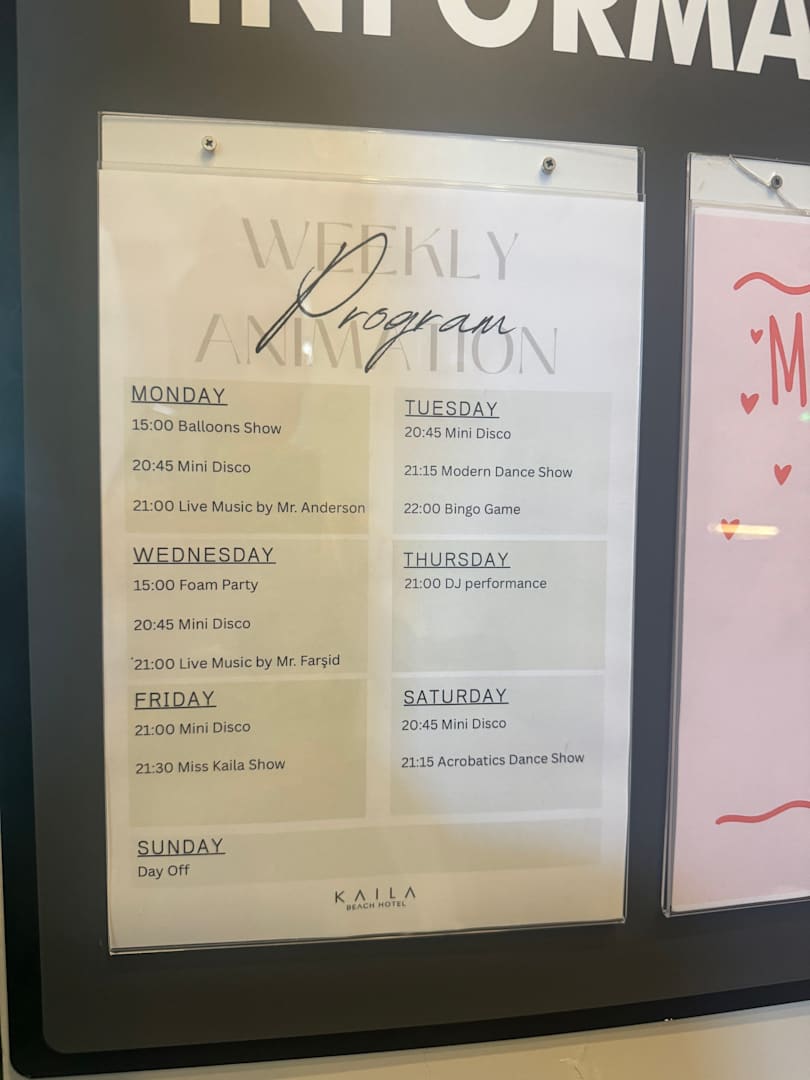 INFORMA
WEEKLY
Program
ANIMATION
MONDAY
15:00 Balloons Show
20:45 Mini Disco
21:00 Live Music by Mr. Anderson
TUESDAY
20:45 Mini Disco
21:15 Modern Dance Show
22:00 Bingo Game
WEDNESDAY
15:00 Foam Party
20:45 Mini Disco
21:00 Live Music by Mr. Farşid
THURSDAY
21:00 DJ performance
FRIDAY
21:00 Mini Disco
21:30 Miss Kaila Show
SATURDAY
20:45 Mini Disco
21:15 Acrobatics Dance Show
SUNDAY
Day Off
KAILA
BEACH HOTEL
M